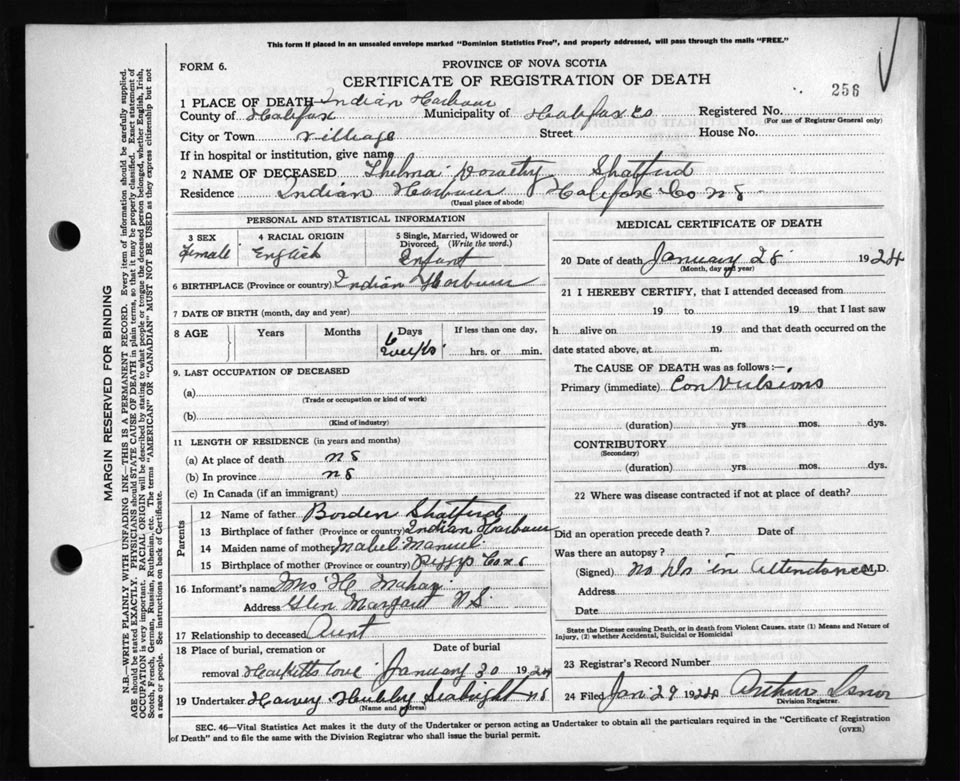 This form if placed in an unsealed envelope marked "Dominion Statistics Free", and properly addressed, will pass through the mails "FREE."
FORM 6.
PROVINCE OF NOVA SCOTIA
CERTIFICATE OF REGISTRATION OF DEATH
256
1 PLACE OF DEATH Indian Harbour
County of Halifax Municipality of Halifax Co Registered No.
(For use of Registrar General only)
City or Town village Street House No.
If in hospital or institution, give name
2 NAME OF DECEASED Thelma Dorothy Shatford
Residence Indian Harbour Halifax Co N S
(Usual place of abode)
PERSONAL AND STATISTICAL INFORMATION
3 SEX 4 RACIAL ORIGIN 5 Single, Married, Widowed or Divorced, (Write the word.)
Female English Infant
6 BIRTHPLACE (Province or country) Indian Harbour
7 DATE OF BIRTH (month, day and year)
8 AGE Years Months Days If less than one day,
6 weeks hrs. or min.
9. LAST OCCUPATION OF DECEASED
(a)
(Trade or occupation or kind of work)
(b)
(Kind of industry)
11 LENGTH OF RESIDENCE (in years and months)
(a) At place of death N S
(b) In province N S
(c) In Canada (if an immigrant)
Parents
12 Name of father Borden Shatford
13 Birthplace of father (Province or country) Indian Harbour
14 Maiden name of mother Mabel Manuel
15 Birthplace of mother (Province or country)
16 Informant's name Mrs H
Address Glen Margaret N S.
17 Relationship to deceased Aunt
18 Place of burial, cremation or removal Hacketts Cove
Date of burial
January 30 1924
19 Undertaker Harvey Hubley Seabright N S
(Name and address)
MEDICAL CERTIFICATE OF DEATH
20 Date of death January 28 1924
(Month, day and year)
21 I HEREBY CERTIFY, that I attended deceased from
19 to 19 that I last saw
h alive on 19 and that death occurred on the
date stated above, at m.
The CAUSE OF DEATH was as follows:—
Primary (immediate) Convulsions
(duration) yrs mos. dys.
CONTRIBUTORY
(Secondary)
(duration) yrs. mos. dys.
22 Where was disease contracted if not at place of death?
Did an operation precede death? Date of
Was there an autopsy?
(Signed) No Drs in attendance M.D.
Address
Date
State the Disease causing Death, or in death from Violent Causes, state (1) Means and Nature of
Injury, (2) whether Accidental, Suicidal or Homicidal
23 Registrar's Record Number
24 Filed Jan 29 1924 Arthur Isnor
Division Registrar.
SEC. 46—Vital Statistics Act makes it the duty of the Undertaker or person acting as Undertaker to obtain all the particulars required in the "Certificate of Registration
of Death" and to file the same with the Division Registrar who shall issue the burial permit.
(OVER)
MARGIN RESERVED FOR BINDING
N.B.—WRITE PLAINLY WITH UNFADING INK—THIS IS A PERMANENT RECORD. Every item of information should be carefully supplied.
AGE should be stated EXACTLY. PHYSICIANS should STATE CAUSE OF DEATH in plain terms, so that it may be properly classified. Exact statement of
OCCUPATION is very important. RACIAL ORIGIN will be described by stating to what people or tongue the deceased person belonged, whether English, Irish,
Scotch, French, German, Russian, Ruthenian, etc. The terms "AMERICAN" OR "CANADIAN" MUST NOT BE USED as they express citizenship but not
a race or people. See instructions on back of Certificate.